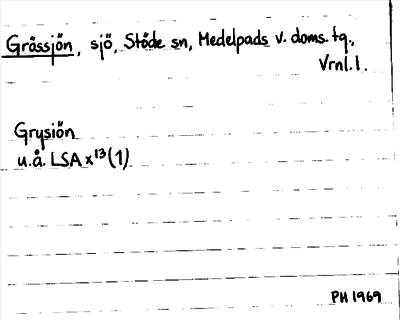 Grässjön, sjö, Stöde sn, Medelpads v. doms. tg.,
Vrnl. l.
Grysiön
u.å. LSA x¹³(1)
PH 1969